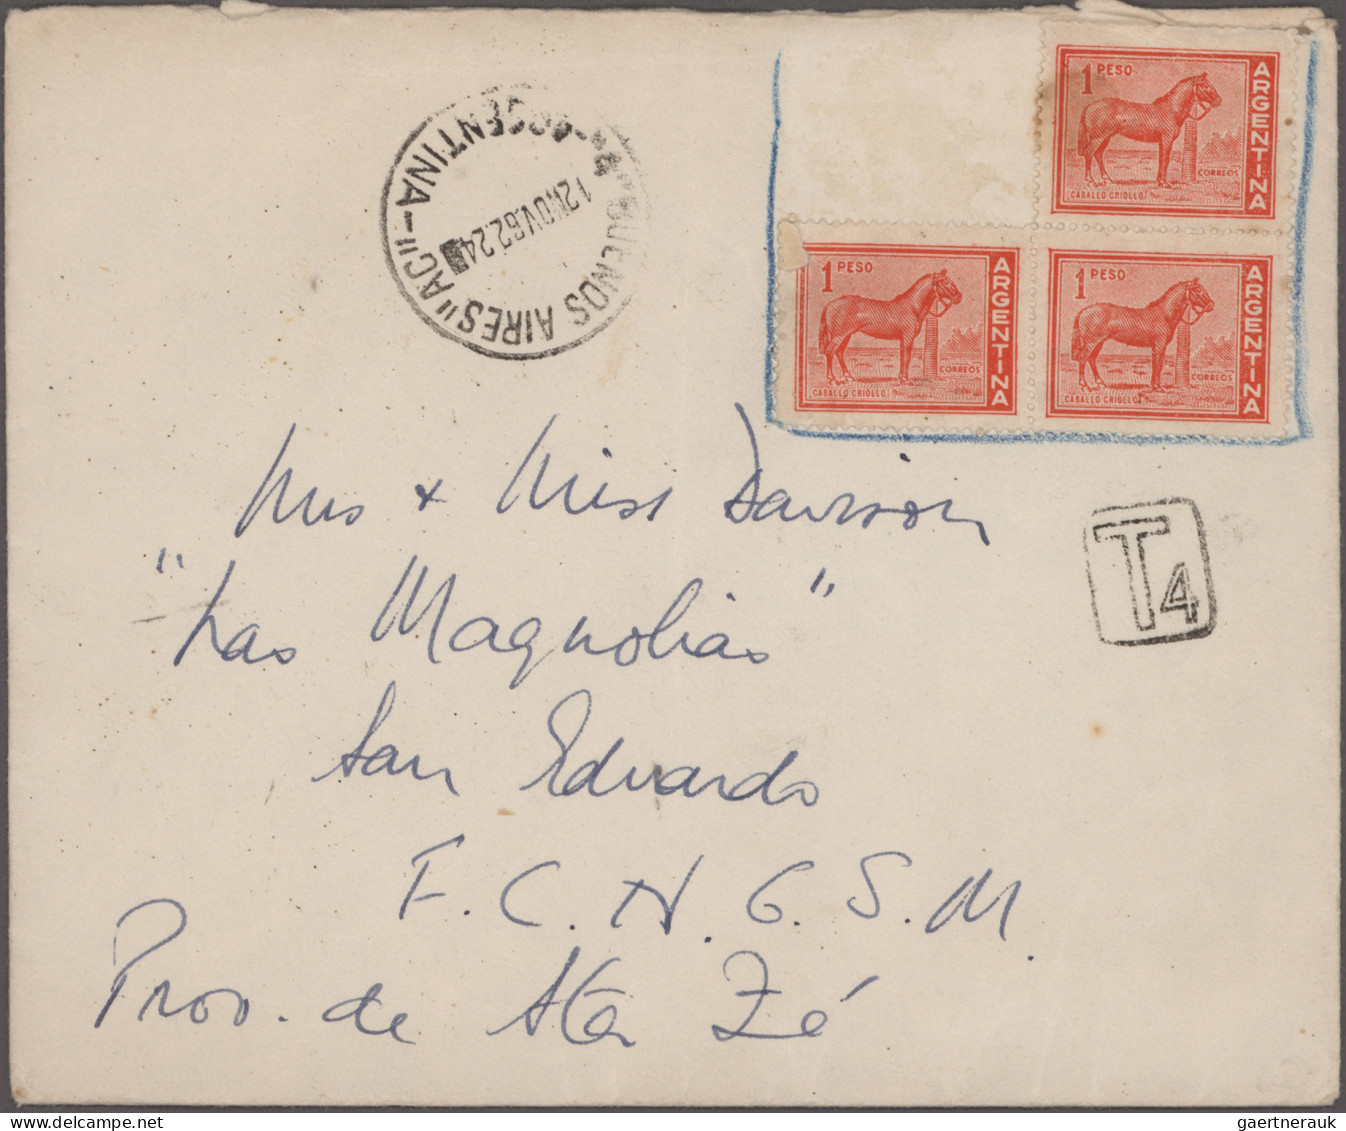 1 PESO
ARGENTINA
CORREOS
CABALLO CRIOLLO
1 PESO
ARGENTINA
CORREOS
CABALLO CRIOLLO
1 PESO
ARGENTINA
CORREOS
CABALLO CRIOLLO
BUENOS AIRES "AC" - ARGENTINA -
12 NOV. 62. 24
T4
Mrs + Miss Davison
"Las Magnolias"
San Eduardo
F. C. N. G. S. M.
Prov. de Sta Fé
gaertnerauk